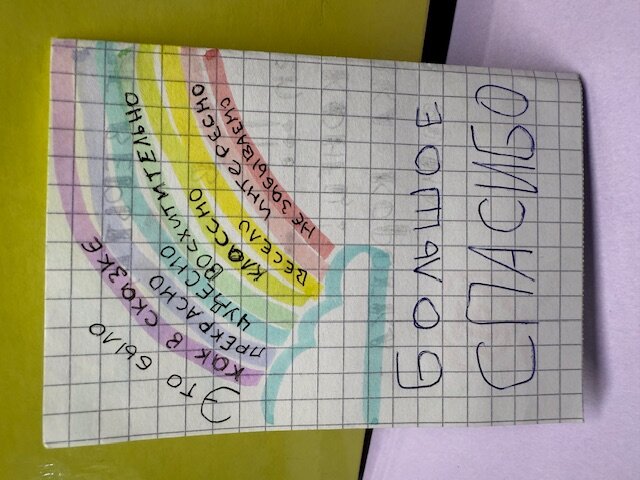 Это было
как в сказке
прекрасно
чудесно
восхитительно
классно
весело интересно
незабываемо
БОЛЬШОЕ
СПАСИБО